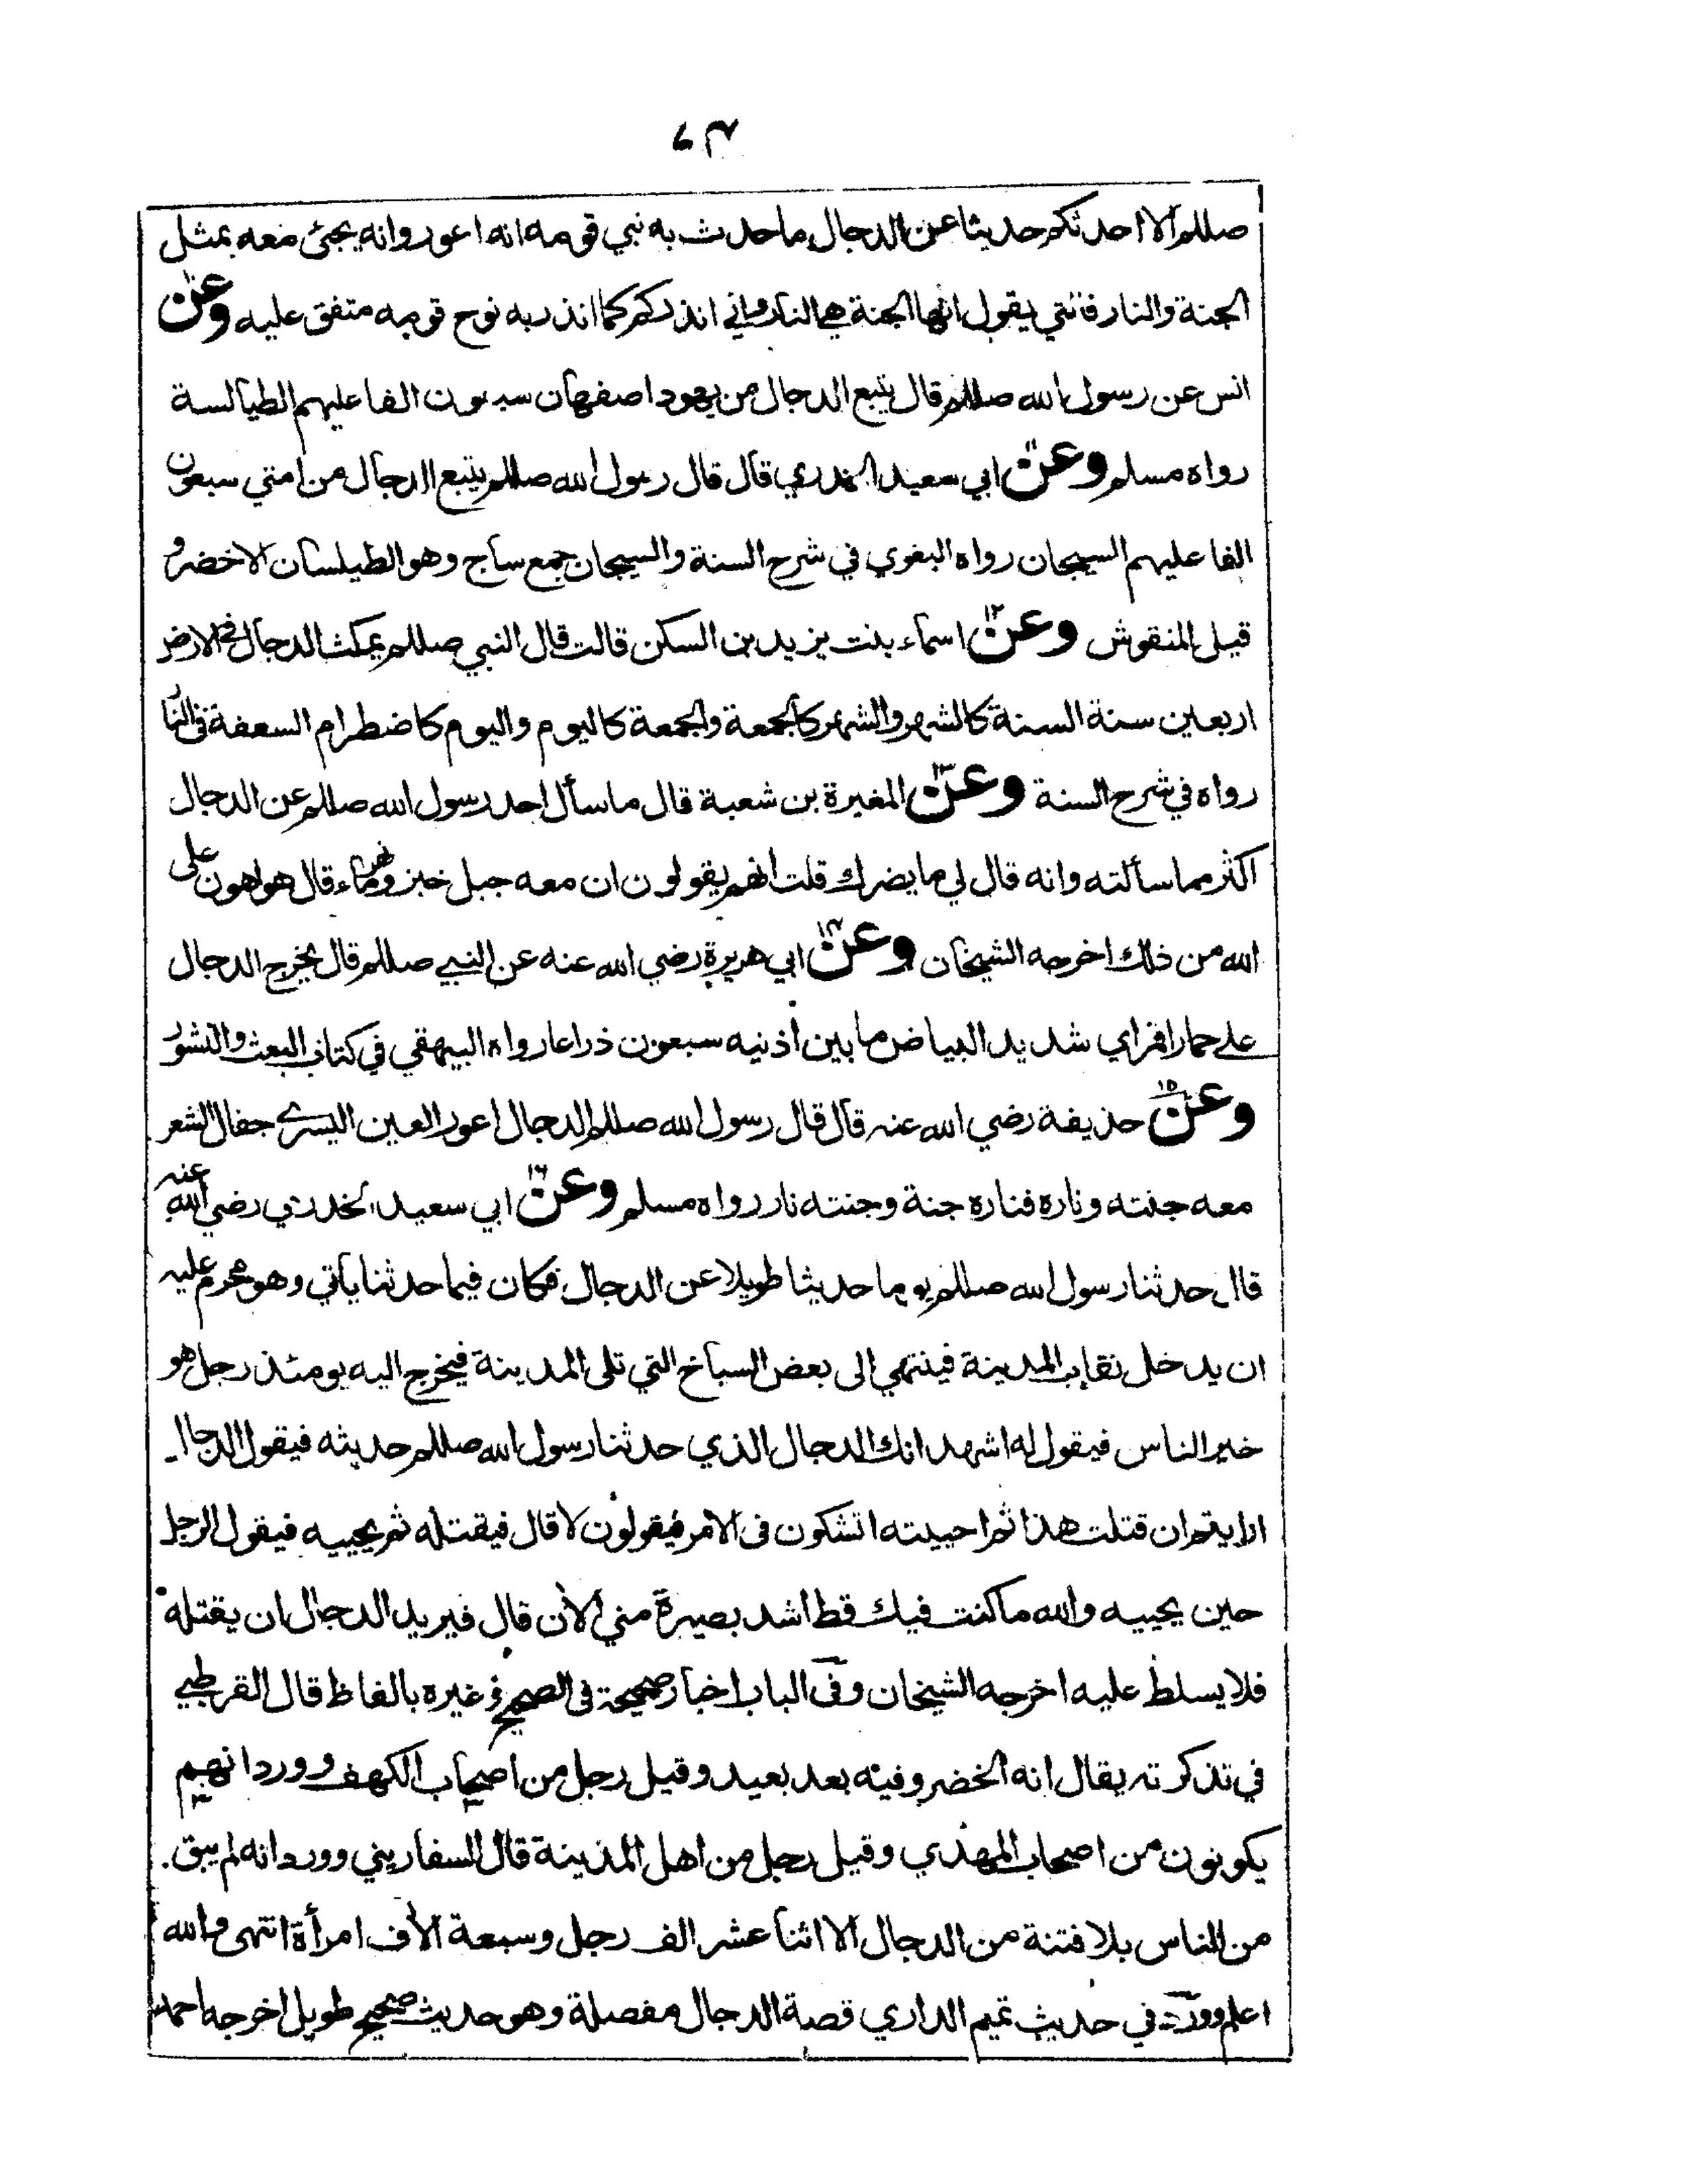 صللم الا احدثكم حديثا عن الدجال ما حدث به نبي قومه انه اعور وانه يجئ معه بمثل
الجنة والنار فالتي يقول انها الجنة هي النار واني انذركم كما انذر به نوح قومه متفق عليه وعن
انس عن رسول الله صللم قال يتبع الدجال من يهود اصفهان سبعون الفا عليهم الطيالسة
رواه مسلم وعن ابي سعيد الخدري قال قال رسول الله صللم يتبع الدجال من امتي سبعون
الفا عليهم السيجان رواه البغوي في شرح السنة والسيجان جمع ساج وهو الطيلسان الاخضر و
قيل المنقوش وعن ١٢ اسماء بنت يزيد بن السكن قالت قال النبي صللم يمكث الدجال في الارض
اربعين سنة السنة كالشهر والشهر كالجمعة والجمعة كاليوم واليوم كاضطرام السعفة في النار
رواه في شرح السنة وعن ١٣ المغيرة بن شعبة قال ما سأل احد رسول الله صللم عن الدجال
اكثر مما سألته وانه قال لي ما يضرك قلت انهم يقولون ان معه جبل خبز ونهر ماء قال هو اهون على
الله من ذلك اخرجه الشيخان وعن ١٤ ابي هريرة رضي الله عنه عن النبي صللم قال يخرج الدجال
على حمار اقمر اي شديد البياض ما بين أذنيه سبعون ذراعا رواه البيهقي في كتاب البعث والنشور
وعن ١٥ حذيفة رضي الله عنه قال قال رسول الله صللم الدجال اعور العين اليسرى جفال الشعر
معه جنته وناره فناره جنة وجنته نار رواه مسلم وعن ١٦ ابي سعيد الخدري رضي الله عنه
قال حدثنا رسول الله صللم يوما حديثا طويلا عن الدجال فكان فيما حدثنا ياتي وهو محرم عليه
ان يدخل نقاب المدينة فينتهي الى بعض السباخ التي تلى المدينة فيخرج اليه يومئذ رجل هو
خير الناس فيقول له اشهد انك الدجال الذي حدثنا رسول الله صللم حديثه فيقول الدجال
ارايتم ان قتلت هذا ثم احييته اتشكون في الامر فيقولون لا قال فيقتله ثم يحييه فيقول الرجل
حين يحييه والله ما كنت فيك قط اشد بصيرة مني الأن قال فيريد الدجال ان يقتله
فلا يسلط عليه اخرجه الشيخان وفي الباب اخبار صحيحة في الصحيح وغيره بالفاظ قال القرطبي
في تذكرته يقال انه الخضر وفيه بعد بعيد وقيل رجل من اصحاب الكهف وورد انهم
يكونون من اصحاب المهدي وقيل رجل من اهل المدينة قال السفاريني وورد انه لم يبق
من الناس بلا فتنة من الدجال الا اثنا عشر الف رجل وسبعة الأف امرأة انتهى والله
اعلم وورد في حديث تميم الداري قصة الدجال مفصلة وهو حديث صحيح طويل اخرجه احمد